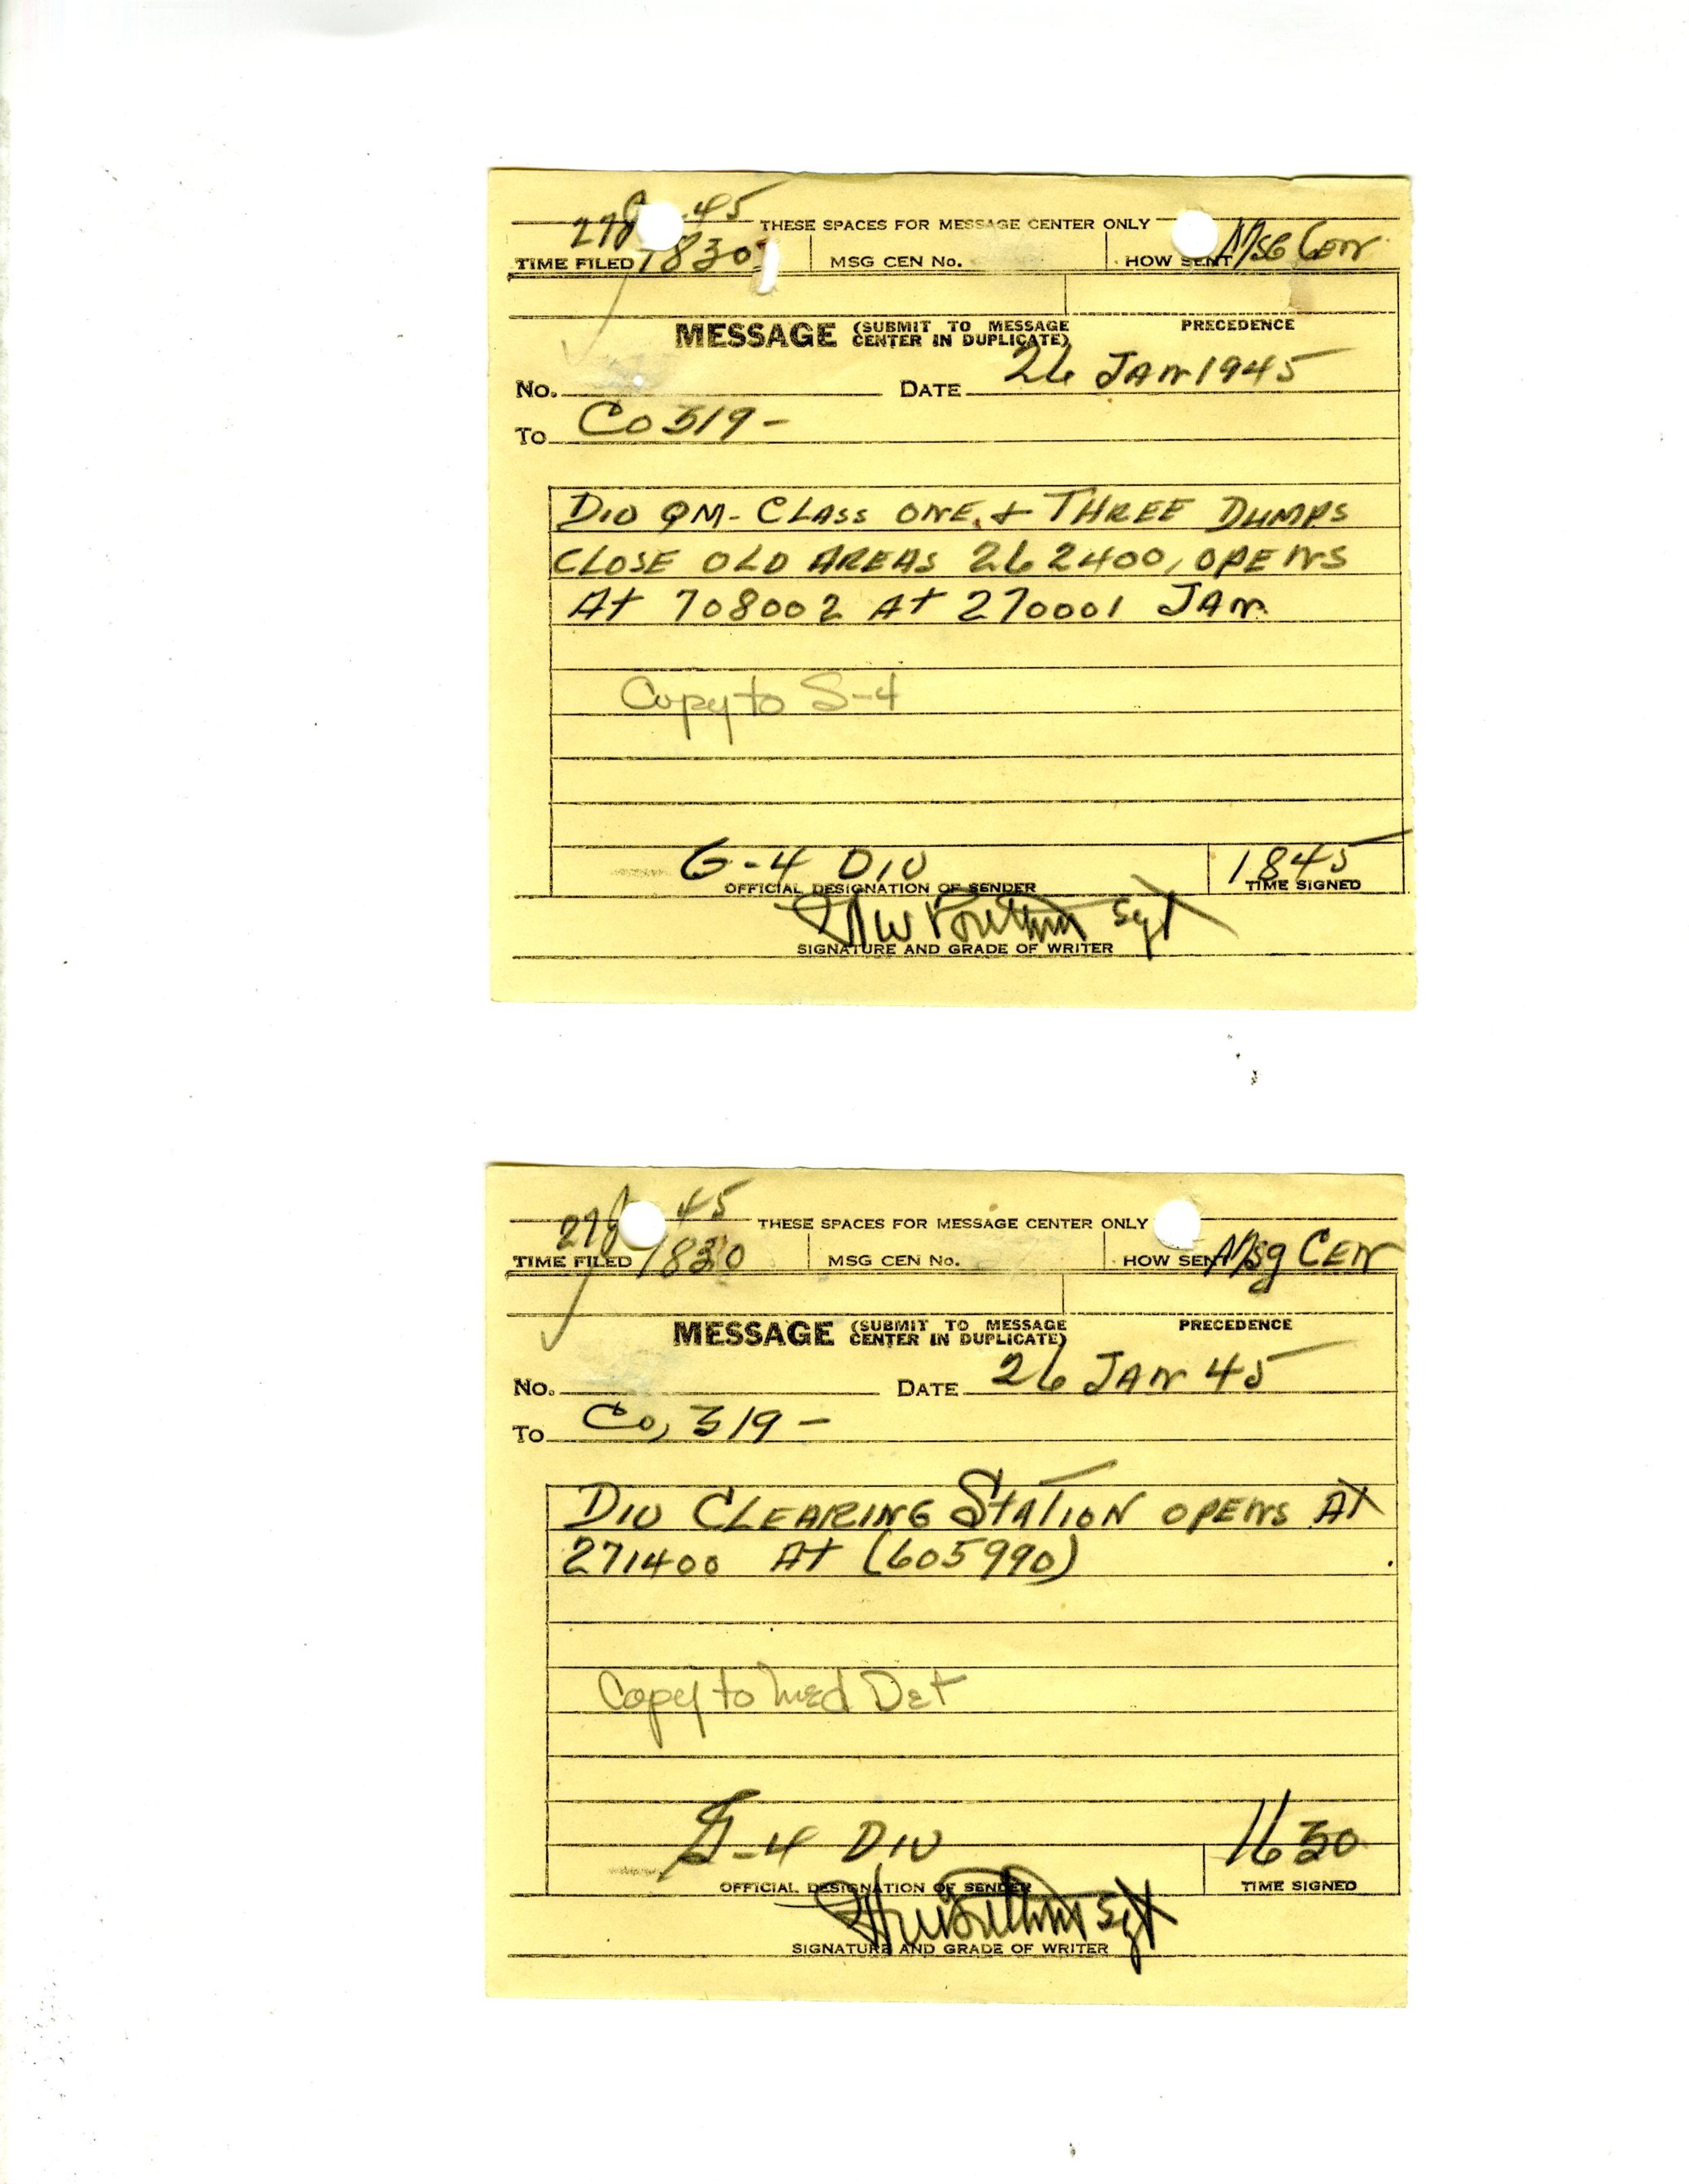 27 J 45
THESE SPACES FOR MESSAGE CENTER ONLY
TIME FILED 1830 MSG CEN No. HOW SENT MSG CEN
MESSAGE (SUBMIT TO MESSAGE CENTER IN DUPLICATE) PRECEDENCE
No. DATE 26 JAN 1945
To CO 319 -
DIV QM - CLASS ONE & THREE DUMPS
CLOSE OLD AREAS 262400, OPENS
At 708002 At 270001 JAN
Copy to S-4
G-4 DIV 1845
OFFICIAL DESIGNATION OF SENDER TIME SIGNED
Sgt
SIGNATURE AND GRADE OF WRITER
27 J 45
THESE SPACES FOR MESSAGE CENTER ONLY
TIME FILED 1830 MSG CEN No. HOW SENT Msg CEN
MESSAGE (SUBMIT TO MESSAGE CENTER IN DUPLICATE) PRECEDENCE
No. DATE 26 JAN 45
To Co, 319 -
DIV CLEARING StATION OPENS At
271400 At (605990)
Copy to Med Det
G-4 DIV 1630
OFFICIAL DESIGNATION OF SENDER TIME SIGNED
Sgt
SIGNATURE AND GRADE OF WRITER